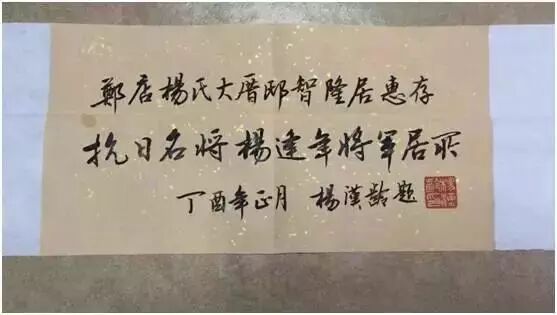 鄭店楊氏大厝邸智隆居惠存
抗日名将楊逢年将軍居所
丁酉年正月 楊漢龄题